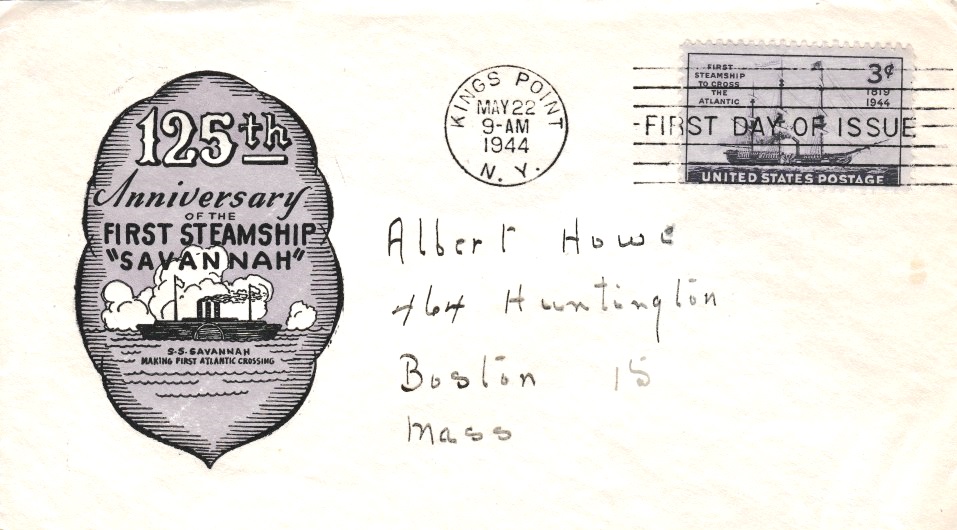 125th
Anniversary
OF THE
FIRST STEAMSHIP
"SAVANNAH"
S-S-SAVANNAH
MAKING FIRST ATLANTIC CROSSING
KINGS POINT
MAY 22
9-AM
1944
N. Y.
FIRST
STEAMSHIP
TO CROSS
THE
ATLANTIC
3¢
1819
1944
FIRST DAY OF ISSUE
UNITED STATES POSTAGE
Albert Howe
464 Huntington
Boston 15
Mass